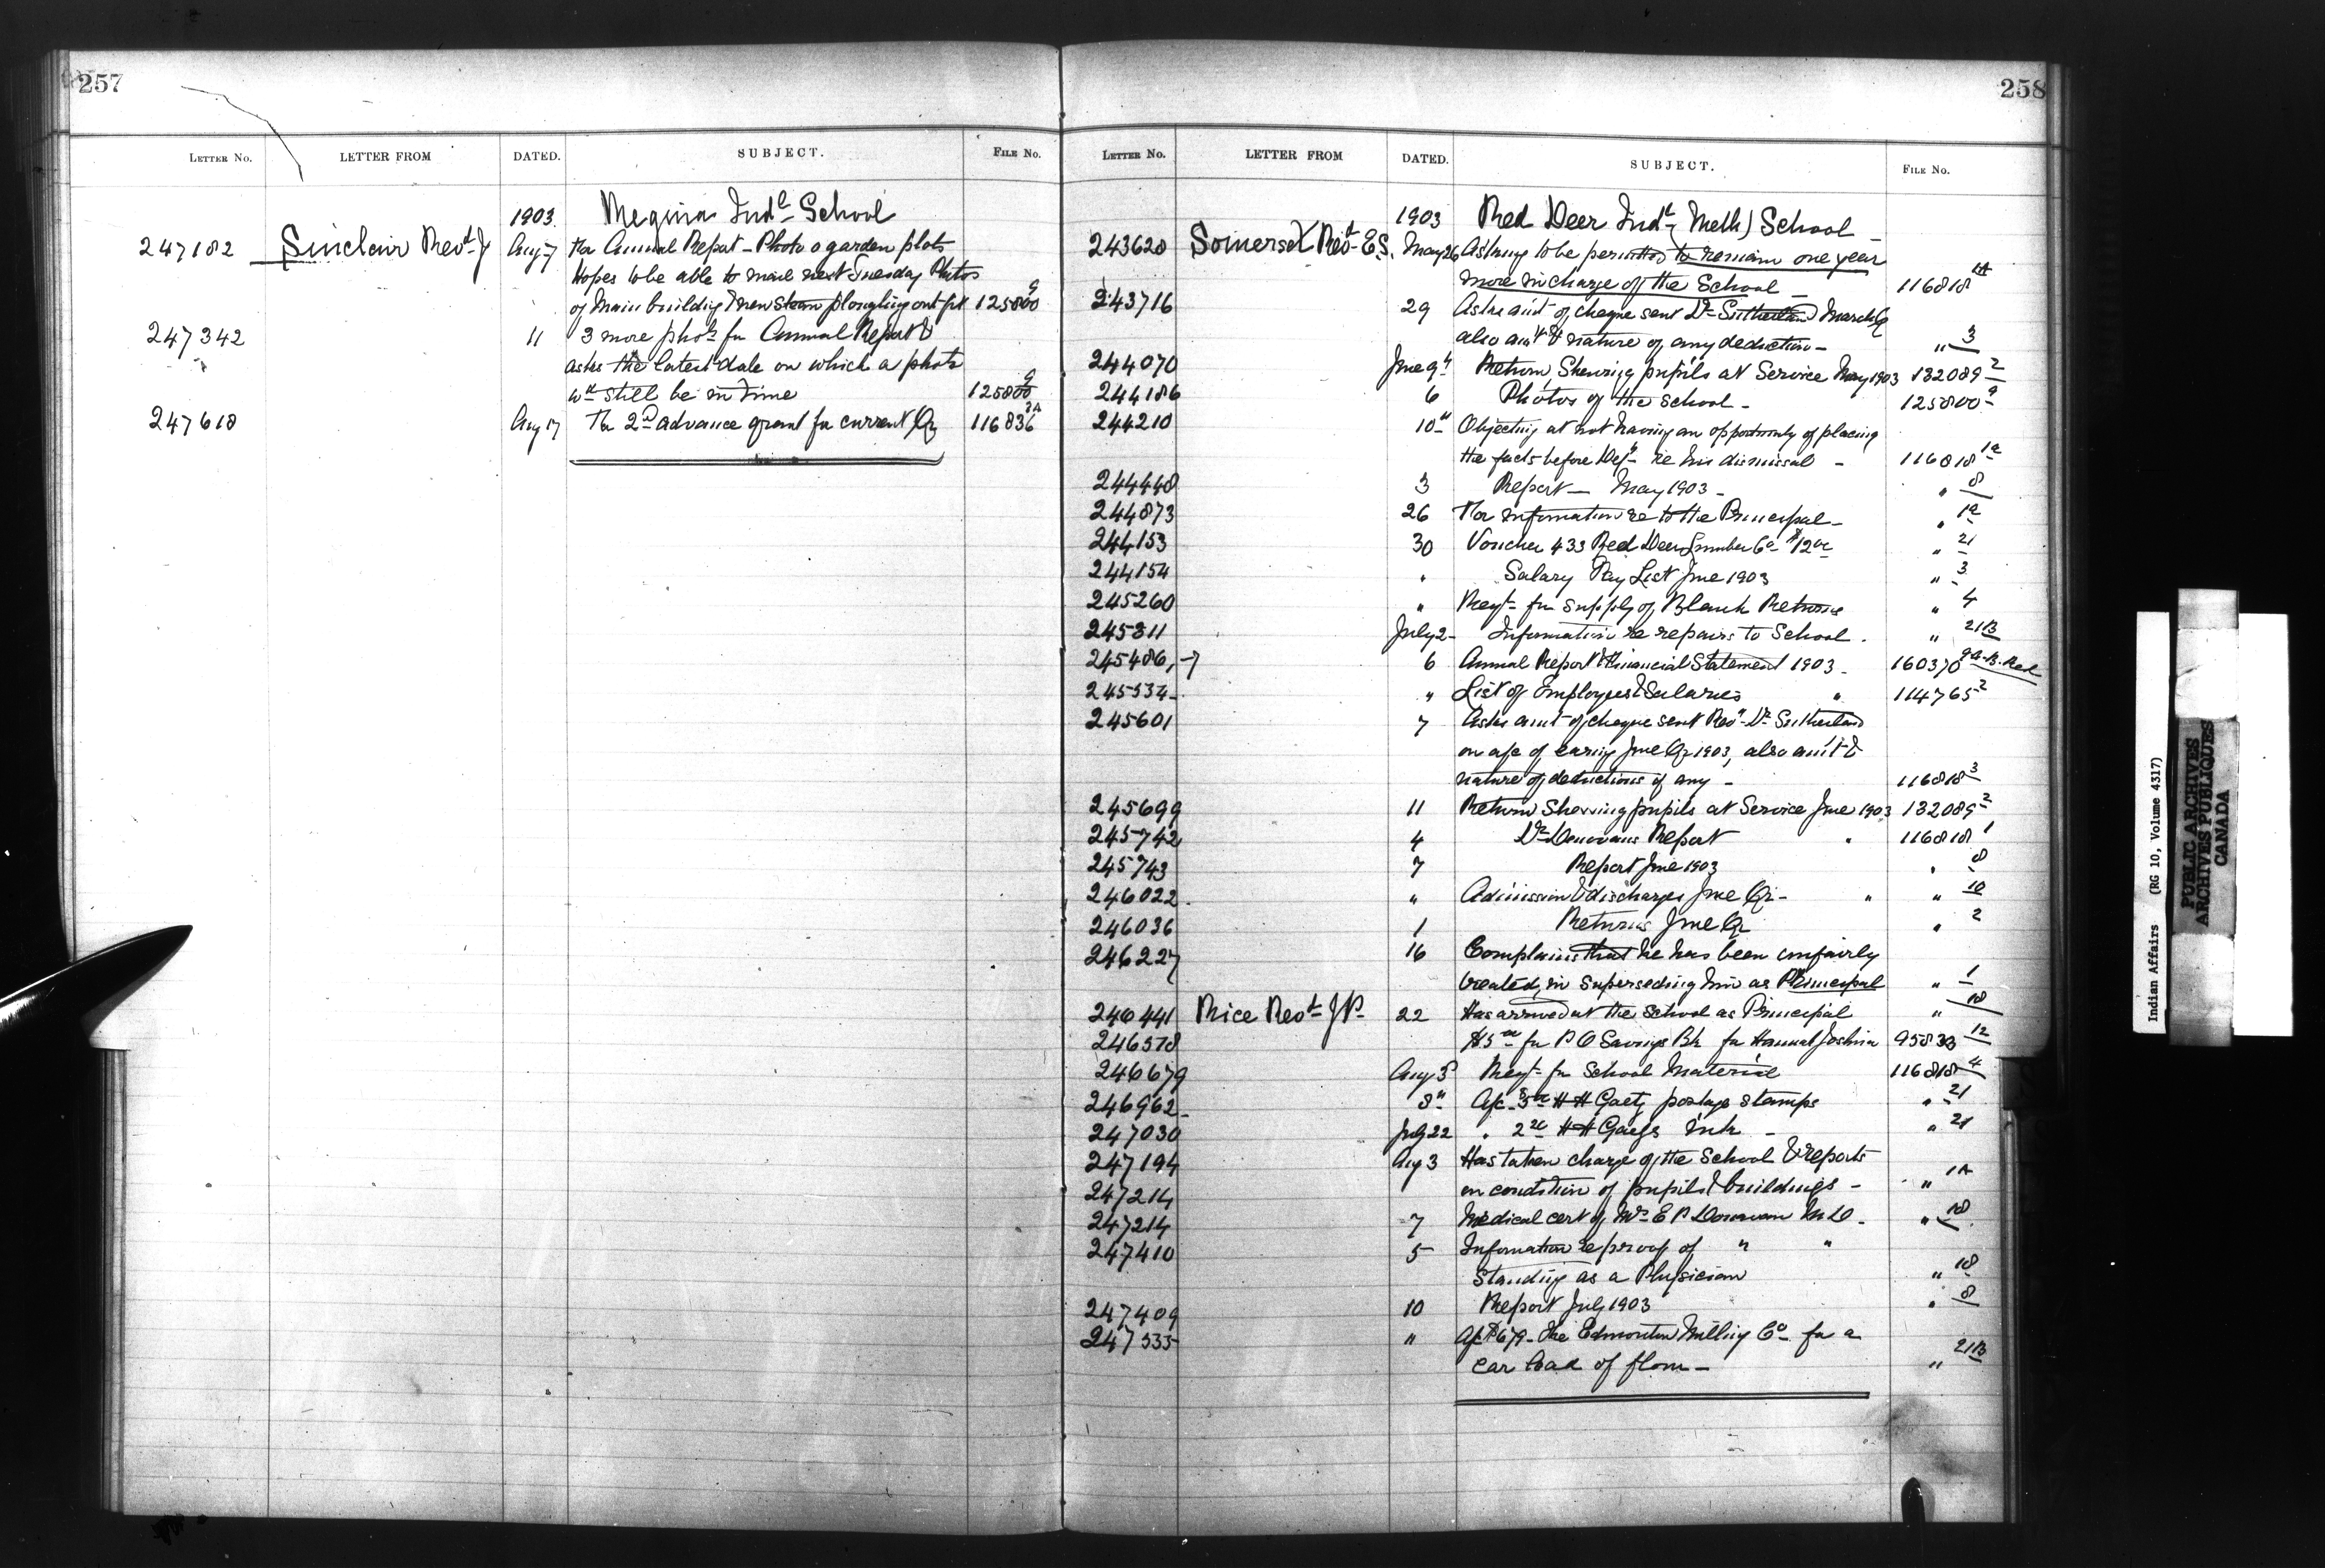 257
LETTER No. LETTER FROM DATED. SUBJECT. FILE No.
1903. Regina Indl School
247182 Sinclair Revd J Aug 7 For Annual Report - Photo o garden plots
Hopes to be able to mail next Tuesday Photos
of Main building & new steam ploughing out-fit 125800 9
247342 11 3 more photos for Annual Report &
asks the latest date on which a photo
wd still be in time 125800 9
247618 Aug 17 For 2nd advance grant for current Qr 116836 3A
258
LETTER No. LETTER FROM DATED. SUBJECT. FILE No.
1903 Red Deer Indl, Meth) School
243628 Somerset Revd E.S. May 26 Asking to be permitted to remain one year
more in charge of the School - 116818 1A
243716 29 Asks am't of cheque sent Dr Sutherland March Qr
also am't & nature of any deduction - " 3
244070 June 9th Return Shewing pupils at Service May 1903 132089 2
244186 6 Photos of the School - 125800 9
244210 10th Objecting at not having an opportunity of placing
the facts before Dept re his dismissal - 116818 1a
244448 3 Report - May 1903 - " 8
244873 26 For information re to the Principal - " 1a
244153 30 Voucher 433 Red Deer Lumber Co $12 " 21
244154 " Salary Pay List June 1903 " 3
245260 " Reqt for supply of Blank Returns " 4
245311 July 2 - Information re repairs to School. " 21B
245486, -7 6 Annual Report & Financial Statement 1903 - 160370
245534 - " List of Employees & Salaries " 114765 2
245601 7 Asks amt of cheque sent Revd Dr Sutherland
on a/c of earng June Qr 1903, also am't &
nature of deductions if any - 116818 3
245699 11 Return Shewing pupils at Service June 1903 132089 2
245742 4 Dr Donovans Report " 116818 1
245743 7 Report June 1903 " 8
246022. " Admission & discharges June Qr - " " 10
246036 1 Returns June Qr " 2
246227 16 Complains that he has been unfairly
treated, in superseding him as Principal " 1
246441 Rice Revd J P - 22 Has arrived at the School as Principal " 18
246578 $5 for P O Savings Bk for Hannah Joshua 95833 12
246679 Aug 3 Reqt for School Material 116818 4
246962 - 8th A/c H H Gaetz postage stamps " 21
247030 July 22 " H H Gaetz Ink - " 21
247194 Aug 3 Has taken charge of the School & reports
247214 on condition of pupils & buildings - " 1A
247214 7 Medical cert of E P Donovan M D. " 18
247410 5 Information re proof of " "
Standing as a Physician " 18
247409 10 Report July 1903 " 8
247535 " A/c $679 - the Edmonton Milling Co for a
car load of flour - " 21B
Indian Affairs (RG 10, Volume 4317)
PUBLIC ARCHIVES
ARCHIVES PUBLIQUES
CANADA